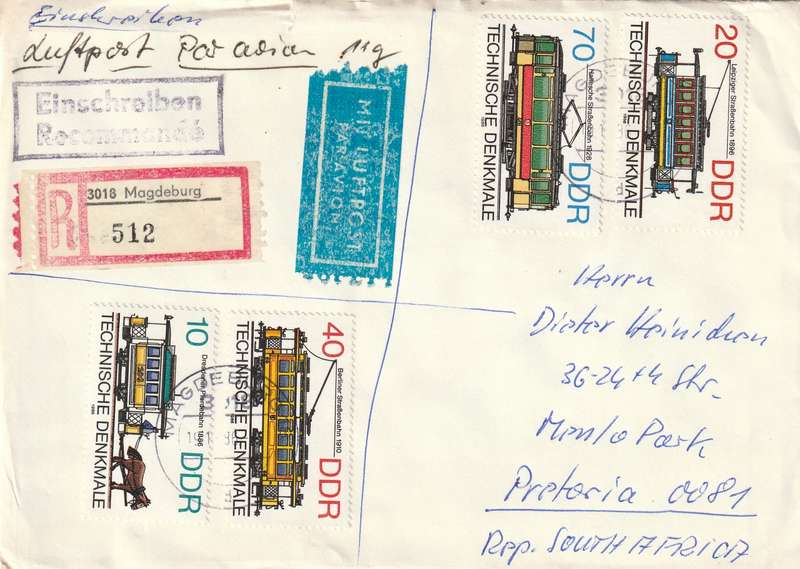 Einschreiben
Luftpost Par avion 11g
Einschreiben
Recommandé
R
3018 Magdeburg
512
MIT LUFTPOST
PAR AVION
70
Hallesche Straßenbahn 1928
TECHNISCHE DENKMALE
1986
DDR
20
Leipziger Straßenbahn 1896
TECHNISCHE DENKMALE
DDR
10
Dresdener Pferdebahn 1886
TECHNISCHE DENKMALE
1986
DDR
40
Berliner Straßenbahn 1910
TECHNISCHE DENKMALE
DDR
MAGDEBURG
Herrn
Dieter Heinichen
36-24th Str.
Menlo Park
Pretoria 0081
Rep. SOUTH AFRICA